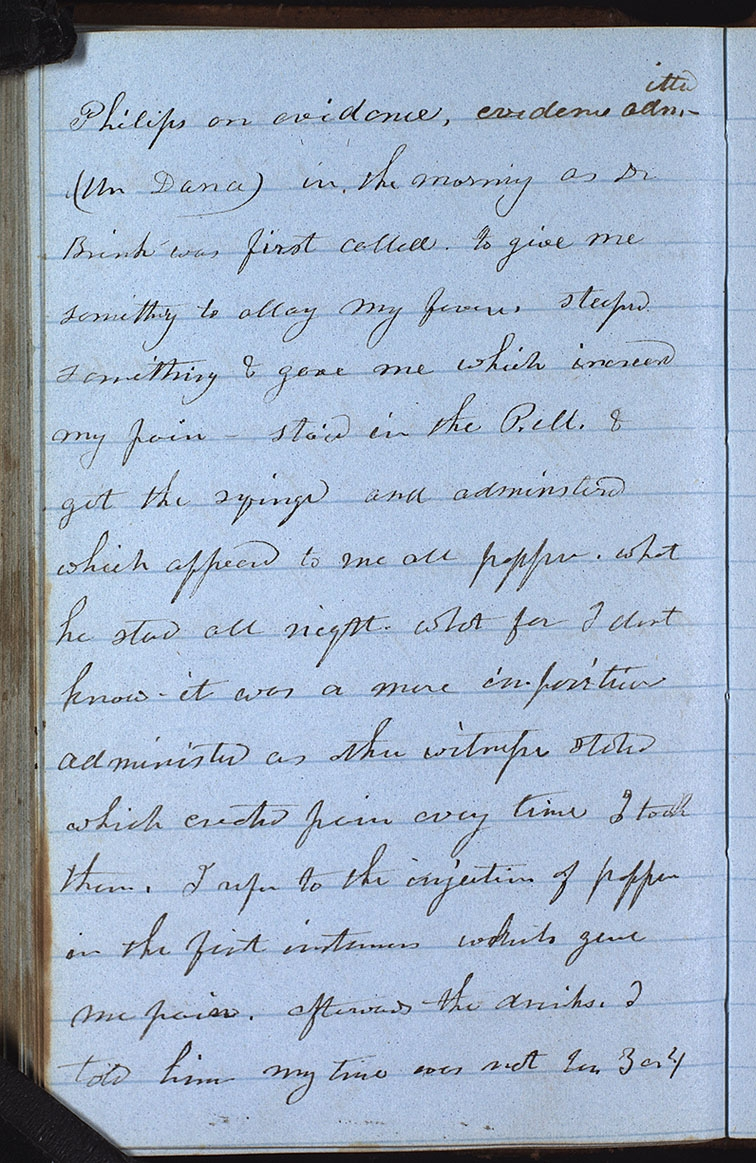 Philips on evidence, evidence adm-
itted
(Mr Dana) in the morning as Dr
Brink was first called. to give me
somethig to allay my fever. steepd
something & gave me which increasd
my pain - staid in the P.M. &
got the syringe and adminsterd
which appeard to me all pepper. what
he staid all night. what for I dont
know - it was a mere imposition
administed as other witness stated
which created pain every time I took
them. I refer to the injection of pepper
in the first instance which gave
me pain. afterwards the drinks. I
told him my time was not 3 or 4